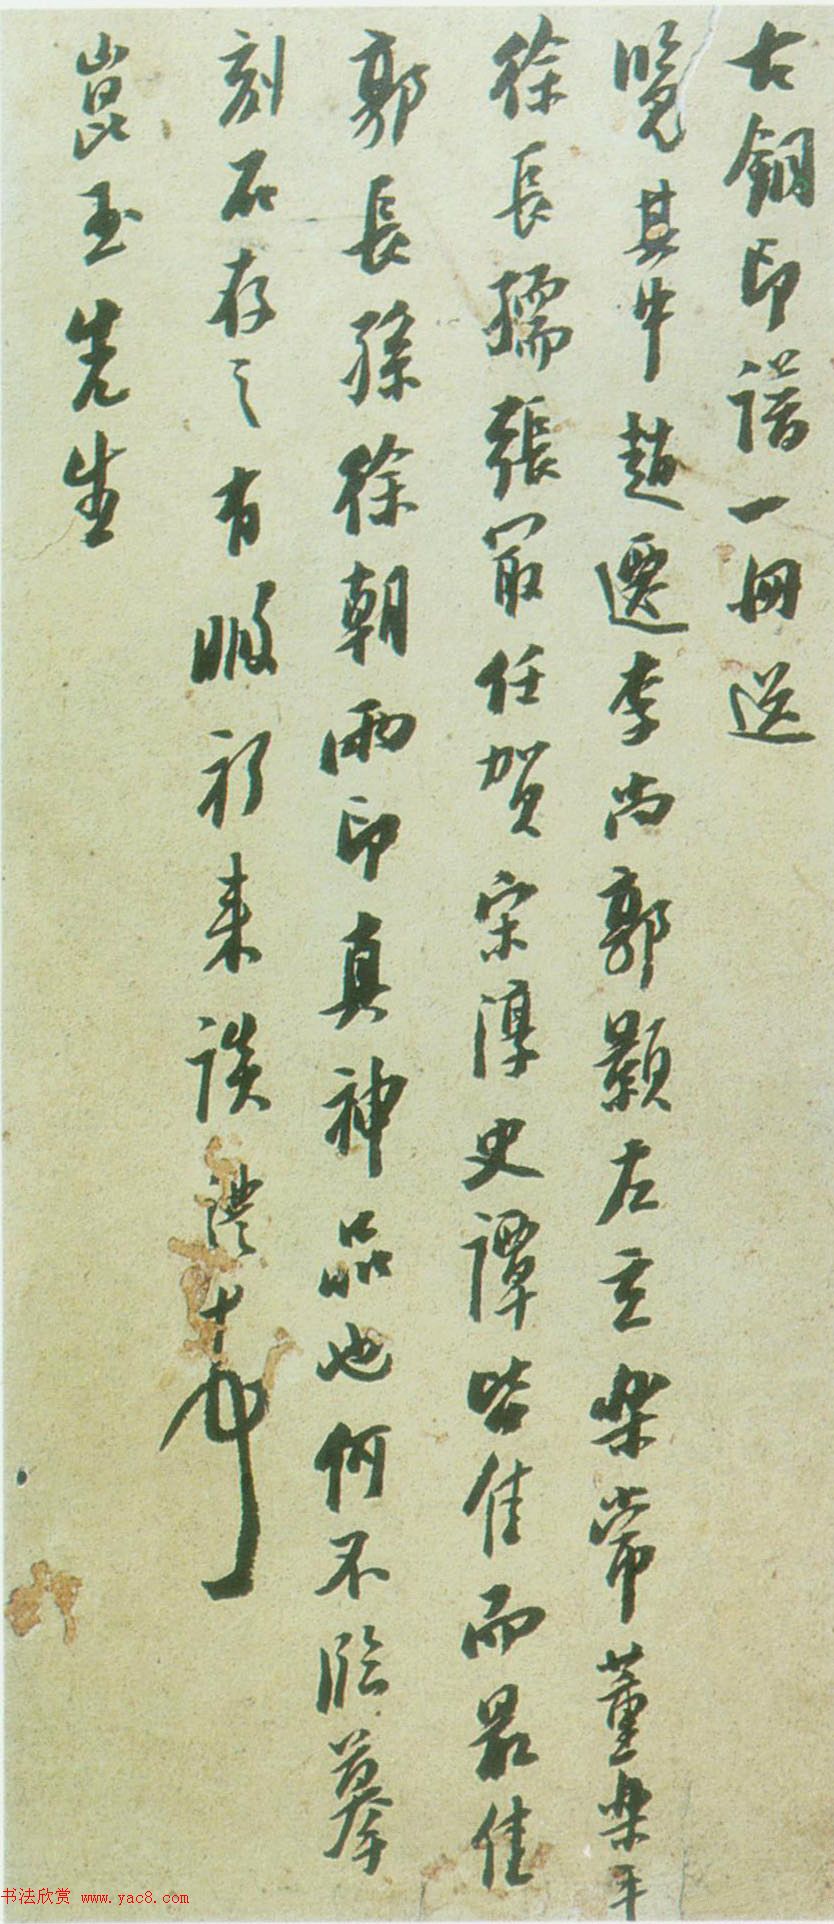 古銅印譜一冊送
覽其中趙遷李尚郭顥左立樂常董樂平
徐長孺張冣任賀宋淳史譚皆佳而最佳
郭長孫徐朝兩印真神品也何不臨摹
刻石存之有暇祈来談
崑玉先生
书法欣赏 www.yac8.com